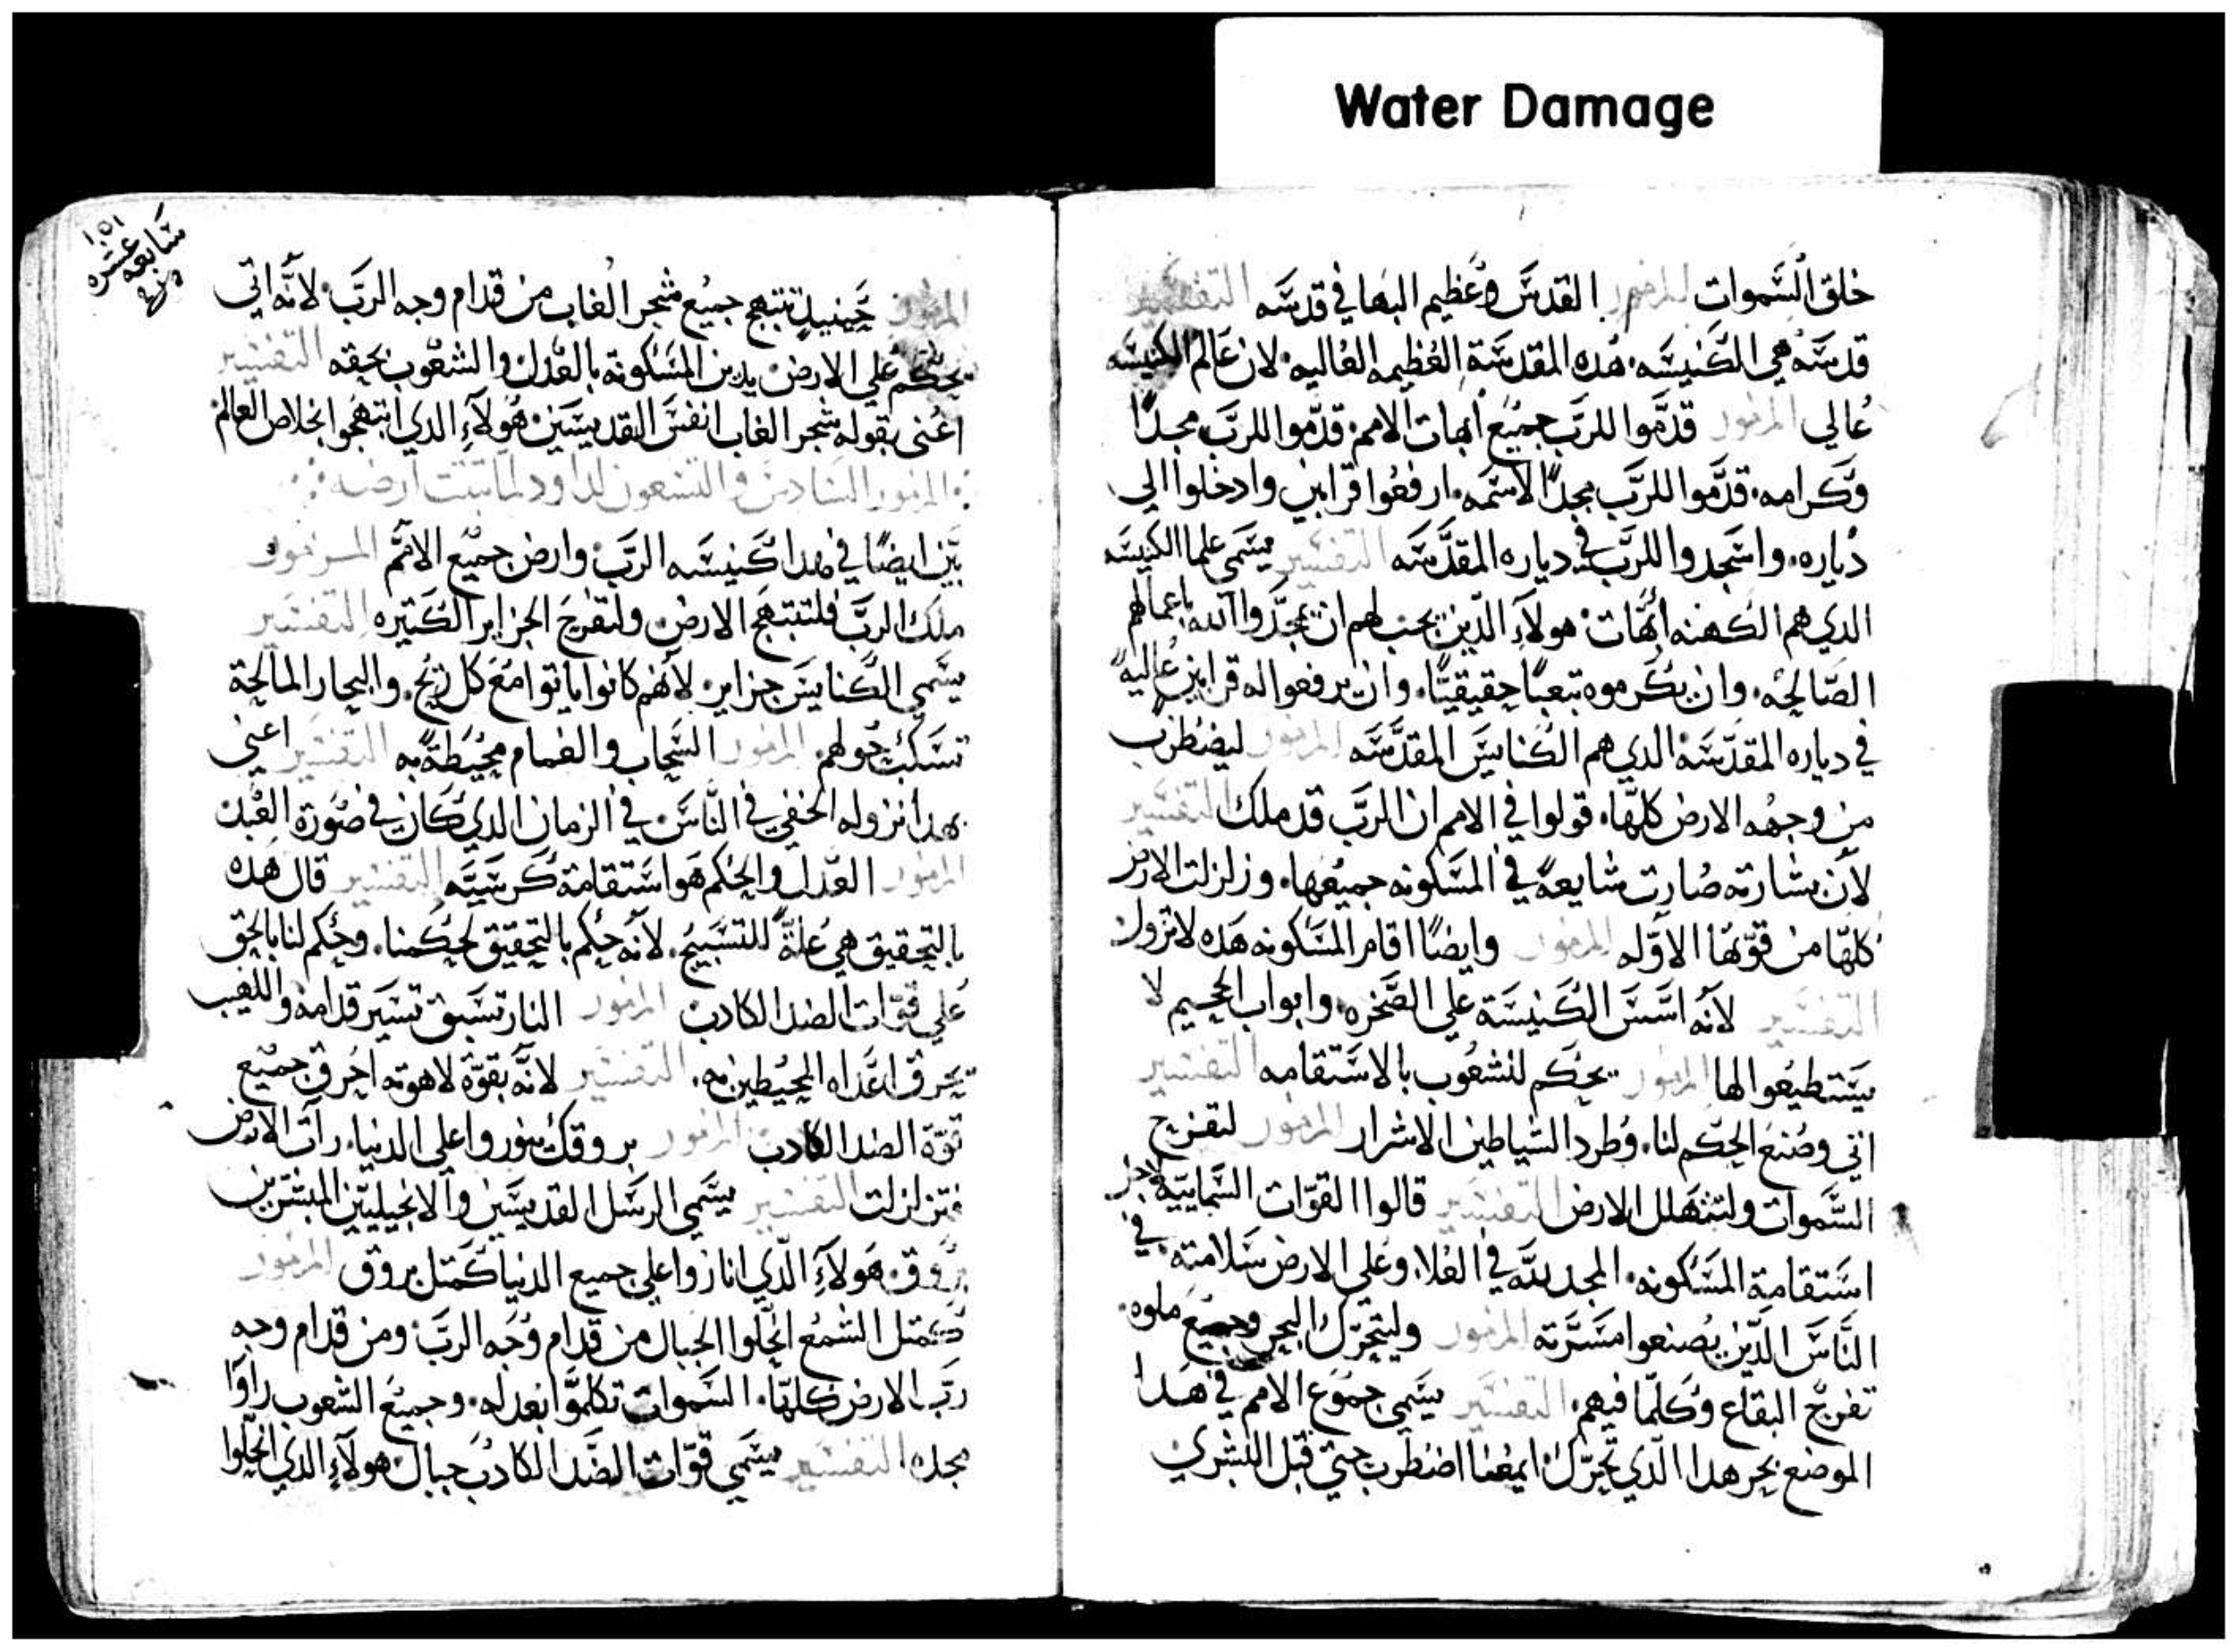 Water Damage
خلق السموات المزمور القدس وعظيم البها في قدسه التفسير
قدسه هي الكنيسه هده المقدسة العظيمه العاليه لان عالم الكنيسه
عالي المزمور قدموا للرب جميع ابهات الامم قدموا للرب مجدا
وكرامه قدموا للرب مجدا لاسمه ارفعوا قرابين وادخلوا الي
دياره واسجدوا للرب في دياره المقدسه التفسير يسمي علما الكنيسه
الدي هم الكهنه ابهات هولاء الدين يجب لهم ان يمجدوا الله باعمالهم
الصالحه وان يكرموه تبعبا حقيقيا وان يرفعوا له قرابين عاليه
في دياره المقدسه الدي هم الكنايس المقدسه المزمور ليضطرب
من وجهه الارض كلها قولوا في الامم ان الرب قد ملك التفسير
لان بشارته صارت شايعة في المسكونه جميعها وزلزلت الارض
كلها من قوتها الاوله المزمور وايضا اقام المسكونه هده لا تزول
التفسير لانه اسس الكنيسة علي الصخره وابواب الجحيم لا
يستطيعوا لها المزمور يحكم للشعوب بالاستقامه التفسير
اتي وصنع الحكم لنا وطرد الشياطين الاشرار المزمور لتفرح
السموات ولتتهلل الارض التفسير قالوا القوات السماييه لاجل
استقامة المسكونه المجد لله في العلا وعلي الارض سلامته في
الناس الدين يصنعوا مسرته المزمور وليتحرك البحر وجميع ملوه
تفرح البقاع وكلما فيهم التفسير يسمي جموع الامم في هدا
الموضع بحر هدا الدي تحرك ايمعنا اضطرب حتي قبل البشري
١٥١
سابعه
عشره
المزمور حينيد تبتهج جميع شجر الغاب من قدام وجه الرب لانه اتي
يحكم علي الارض يدين المسكونة بالعدل والشعوب بحقه التفسير
اعني بقوله شجر الغاب انفس القديسين هولاء الدي ابتهجوا بخلاص العالم
المزمور السادس والتسعون لداود لما تبتت ارضه
بين ايضا في هدا كنيسه الرب وارض جميع الامم المزمور
ملك الرب فلتبتهج الارض ولتفرح الجزاير الكتيره التفسير
يسمي الكنايس جزاير لانهم كانوا ياتوا مع كل ريح والبحار المالحة
تسكب حولهم المزمور السحاب والغمام محيطة به التفسير اعني
بهدا نزوله الخفي في الناس في الزمان الدي كان في صورة العبد
المزمور العدل والحكم هو استقامة كرسيه التفسير قال هده
بالتحقيق هي علة للتسبيح لانه حكم بالتحقيق لحكمنا وحكم لنا بالحق
علي قوات الضد الكادب المزمور النار تسبق تسير قدامه واللهيب
يحرق اعداه المحيطين به التفسير لانه بقوة لاهوته احرق جميع
قوة الضد الكادب المزمور بروقك ينوروا علي الدنيا رات الارض
فتزلزلت التفسير يسمي الرسل القديسين والانجيليين المبشرين
بروق هولاء الدي اناروا علي جميع الدنيا كمتل بروق المزمور
كمتل الشمع انحلوا الجبال من قدام وجه الرب ومن قدام وجه
رب الارض كلها السموات تكلموا بعدله وجميع الشعوب راوا
مجده التفسير يسمي قوات الضد الكادب جبال هولاء الدي انحلوا